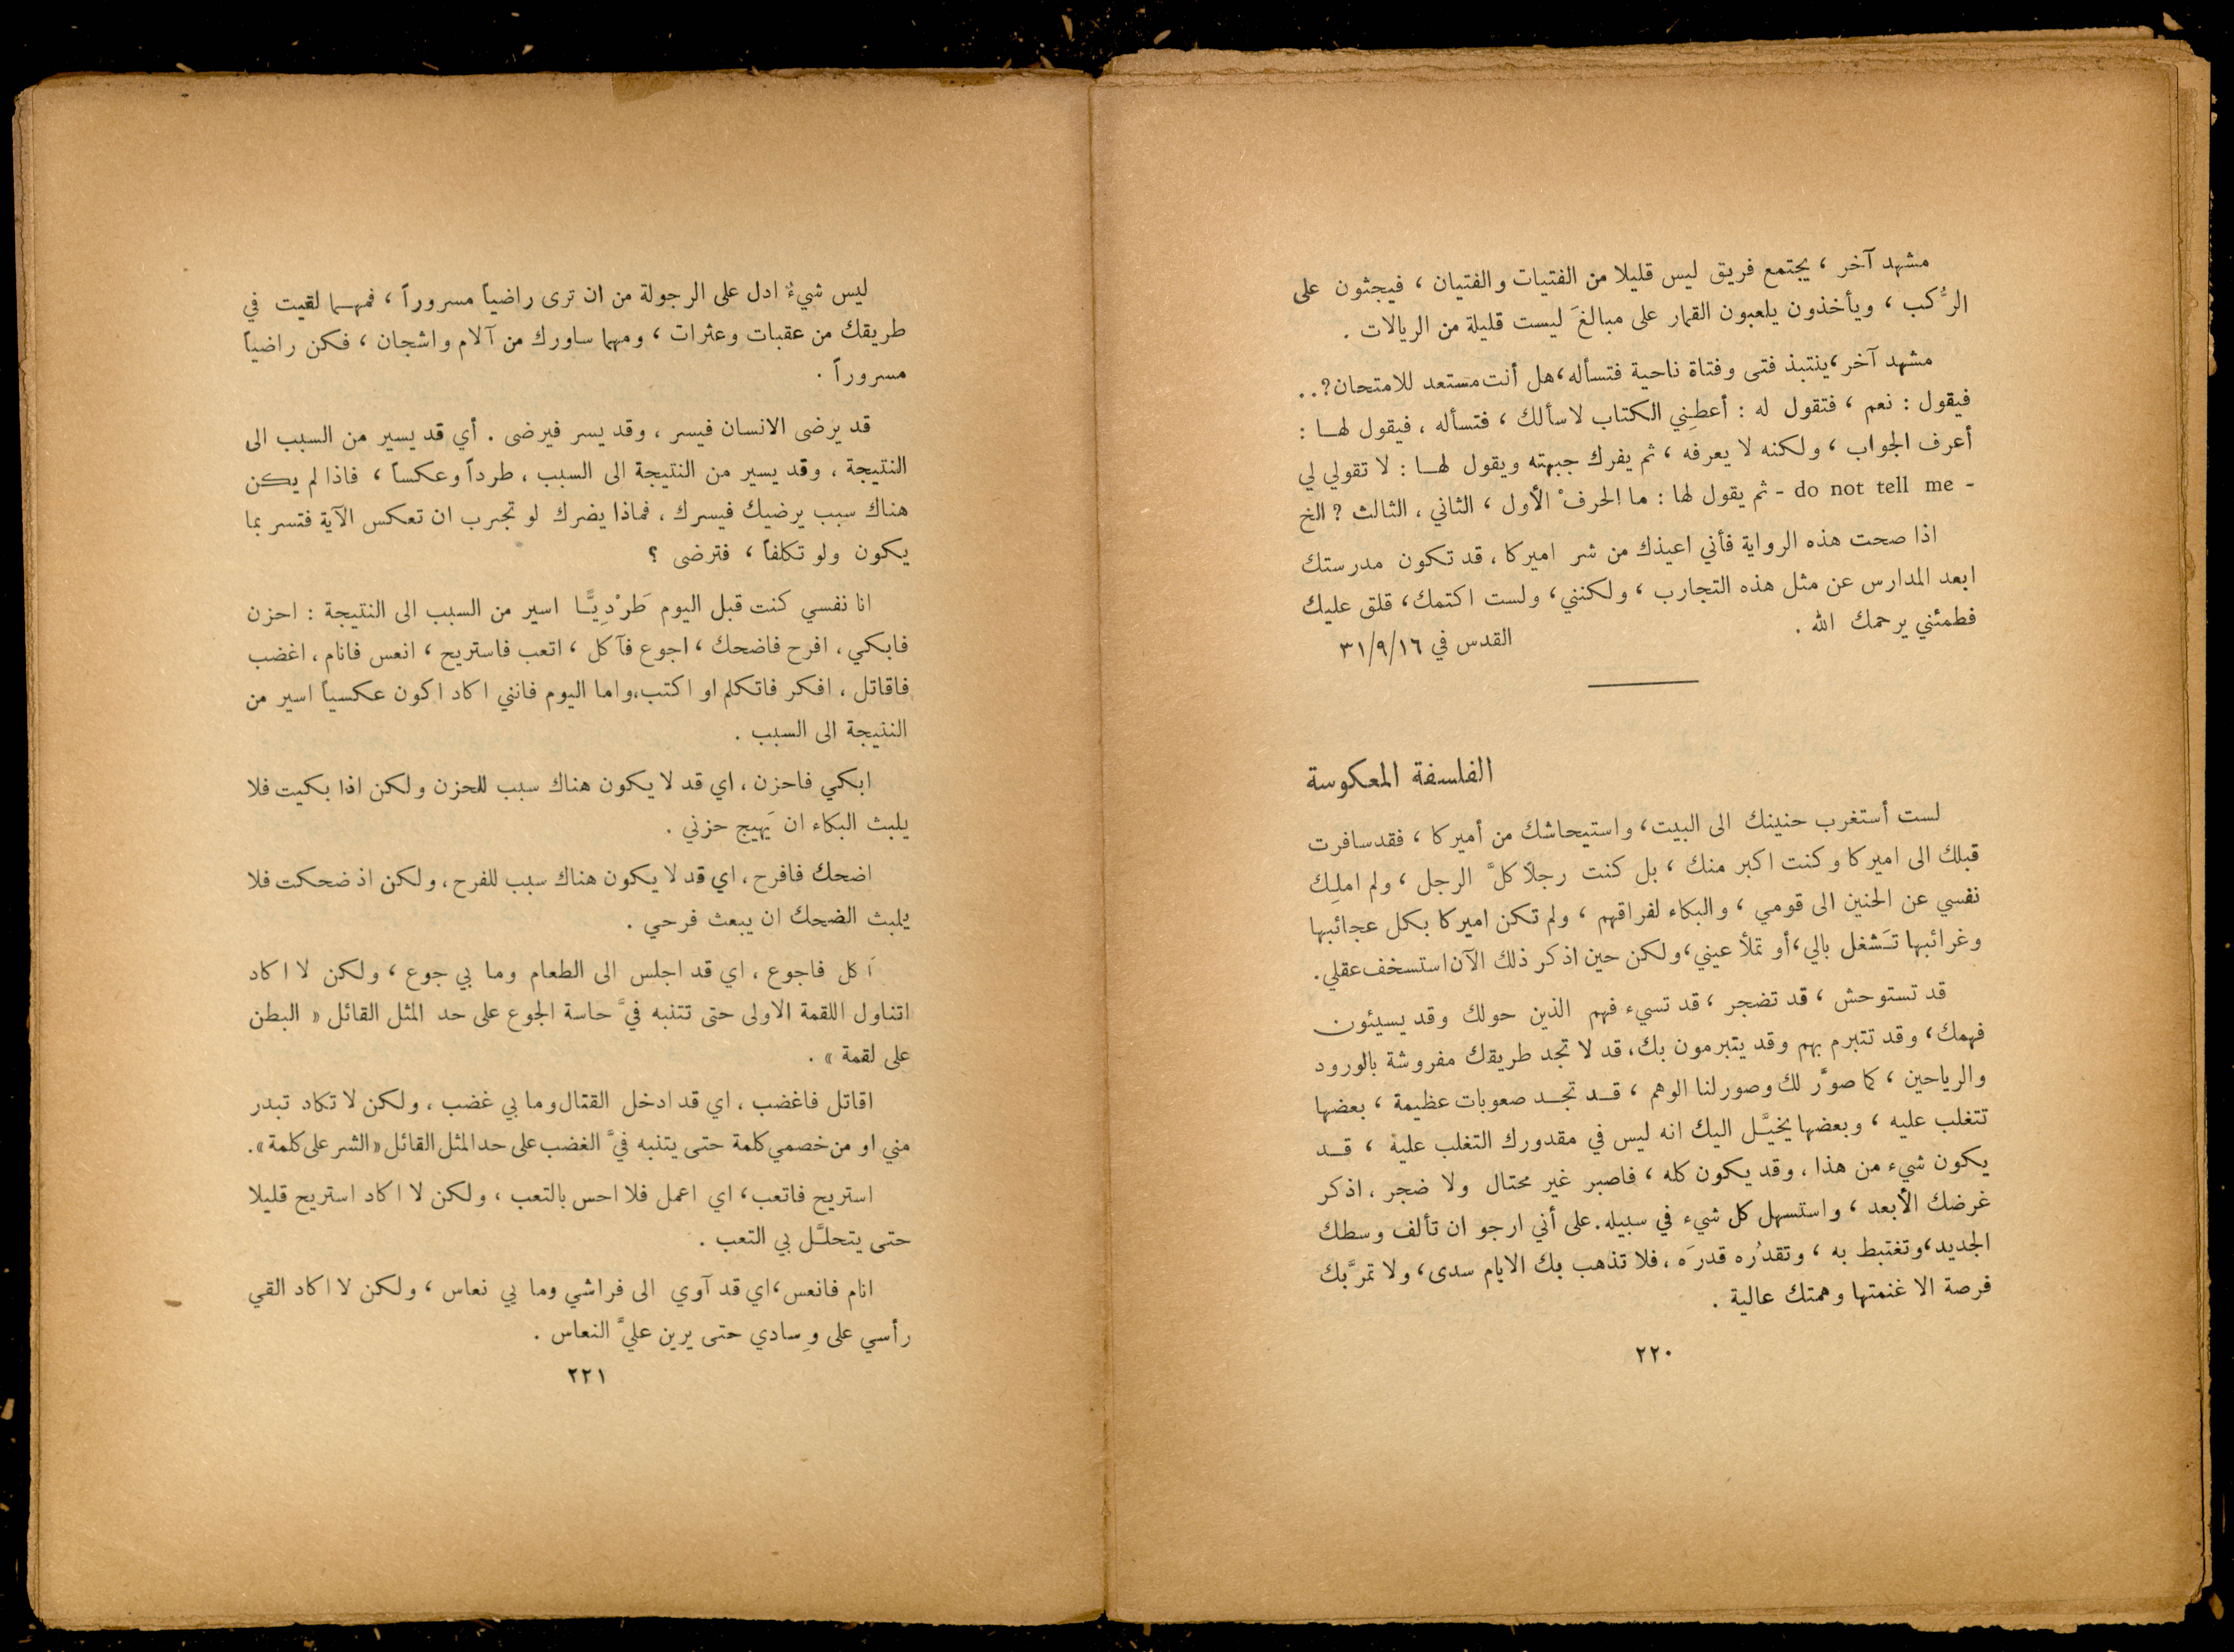 مشهد آخر ، يجتمع فريق ليس قليلا من الفتيات والفتيان ، فيجثون على
الرُّكب ، ويأخذون يلعبون القمار على مبالغَ ليست قليلة من الريالات .
مشهد آخر ، ينتبذ فتى وفتاة ناحية فتسأله ، هل أنت مستعد للامتحان ? ..
فيقول : نعم ، فتقول له : أعطِني الكتاب لاسألك ، فتسأله ، فيقول لهـا :
أعرف الجواب ، ولكنه لا يعرفه ، ثم يفرك جبهته ويقول لهـا : لا تقولي لي
- do not tell me - ثم يقول لها : ما الحرفْ الأول ، الثاني ، الثالث ? الخ
اذا صحت هذه الرواية فأني اعيذك من شر اميركا ، قد تكون مدرستك
ابعد المدارس عن مثل هذه التجارب ، ولكنني ، ولست اكتمك ، قلق عليك
فطمئني يرحمك الله .
القدس في ٣١/٩/١٦
الفلسفة المعكوسة
لست أستغرب حنينك الى البيت ، واستيحاشك من أميركا ، فقد سافرت
قبلك الى اميركا وكنت اكبر منك ، بل كنت رجلاً كلَّ الرجل ، ولم املِك
نفسي عن الحنين الى قومي ، والبكاء لفراقهم ، ولم تكن اميركا بكل عجائبها
وغرائبها تـَشغل بالي ، أو تملأ عيني ، ولكن حين اذكر ذلك الآن استسخف عقلي .
قد تستوحش ، قد تضجر ، قد تسيء فهم الذين حولك وقد يسيئون
فهمك ، وقد تتبرم بهم وقد يتبرمون بك ، قد لا تجد طريقك مفروشة بالورود
والرياحين ، كما صوَّر لك وصور لنا الوهم ، قـد تجـد صعوبات عظيمة ، بعضها
تتغلب عليه ، وبعضها يخيـَّل اليك انه ليس في مقدورك التغلب عليه ، قـد
يكون شيء من هذا ، وقد يكون كله ، فاصبر غير محتال ولا ضجر ، اذكر
غرضك الأبعد ، واستسهل كل شيء في سبيله . على أني ارجو ان تألف وسطك
الجديد ، وتغتبط به ، وتقدُره قدرَه ، فلا تذهب بك الايام سدى ، ولا تمرَّ بك
فرصة الا غنمتها وهمتك عالية .
٢٢٠
ليس شيءٌ ادل على الرجولة من ان ترى راضياً مسروراً ، فمهـما لقيت في
طريقك من عقبات وعثرات ، ومهما ساورك من آلام واشجان ، فكن راضياً
مسروراً .
قد يرضى الانسان فيسر ، وقد يسر فيرضى . أي قد يسير من السبب الى
النتيجة ، وقد يسير من النتيجة الى السبب ، طرداً وعكساً ، فاذا لم يكن
هناك سبب يرضيك فيسرك ، فماذا يضرك لو تجرب ان تعكس الآية فتسر بما
يكون ولو تكلفاً ، فترضى ؟
انا نفسي كنت قبل اليوم طَرْدِيًّـا اسير من السبب الى النتيجة : احزن
فابكي ، افرح فاضحك ، اجوع فآكل ، اتعب فاستريح ، انعس فانام ، اغضب
فاقاتل ، افكر فاتكلم او اكتب ، واما اليوم فانني اكاد اكون عكسياً اسير من
النتيجة الى السبب .
ابكي فاحزن ، اي قد لا يكون هناك سبب للحزن ولكن اذا بكيت فلا
يلبث البكاء ان يَهيج حزني .
اضحك فافرح ، اي قد لا يكون هناك سبب للفرح ، ولكن اذ ضحكت فلا
يلبث الضحك ان يبعث فرحي .
آكل فاجوع ، اي قد اجلس الى الطعام وما بي جوع ، ولكن لا اكاد
اتناول اللقمة الاولى حتى تتنبه فيَّ حاسة الجوع على حد المثل القائل « البطن
على لقمة » .
اقاتل فاغضب ، اي قد ادخل القتال وما بي غضب ، ولكن لا تكاد تبدر
مني او من خصمي كلمة حتى يتنبه فيَّ الغضب على حد المثل القائل « الشر على كلمة » .
استريح فاتعب ، اي اعمل فلا احس بالتعب ، ولكن لا اكاد استريح قليلا
حتى يتحلـَّل بي التعب .
انام فانعس ، اي قد آوي الى فراشي وما بي نعاس ، ولكن لا اكاد القي
رأسي على وِسادي حتى يرين عليَّ النعاس .
٢٢١